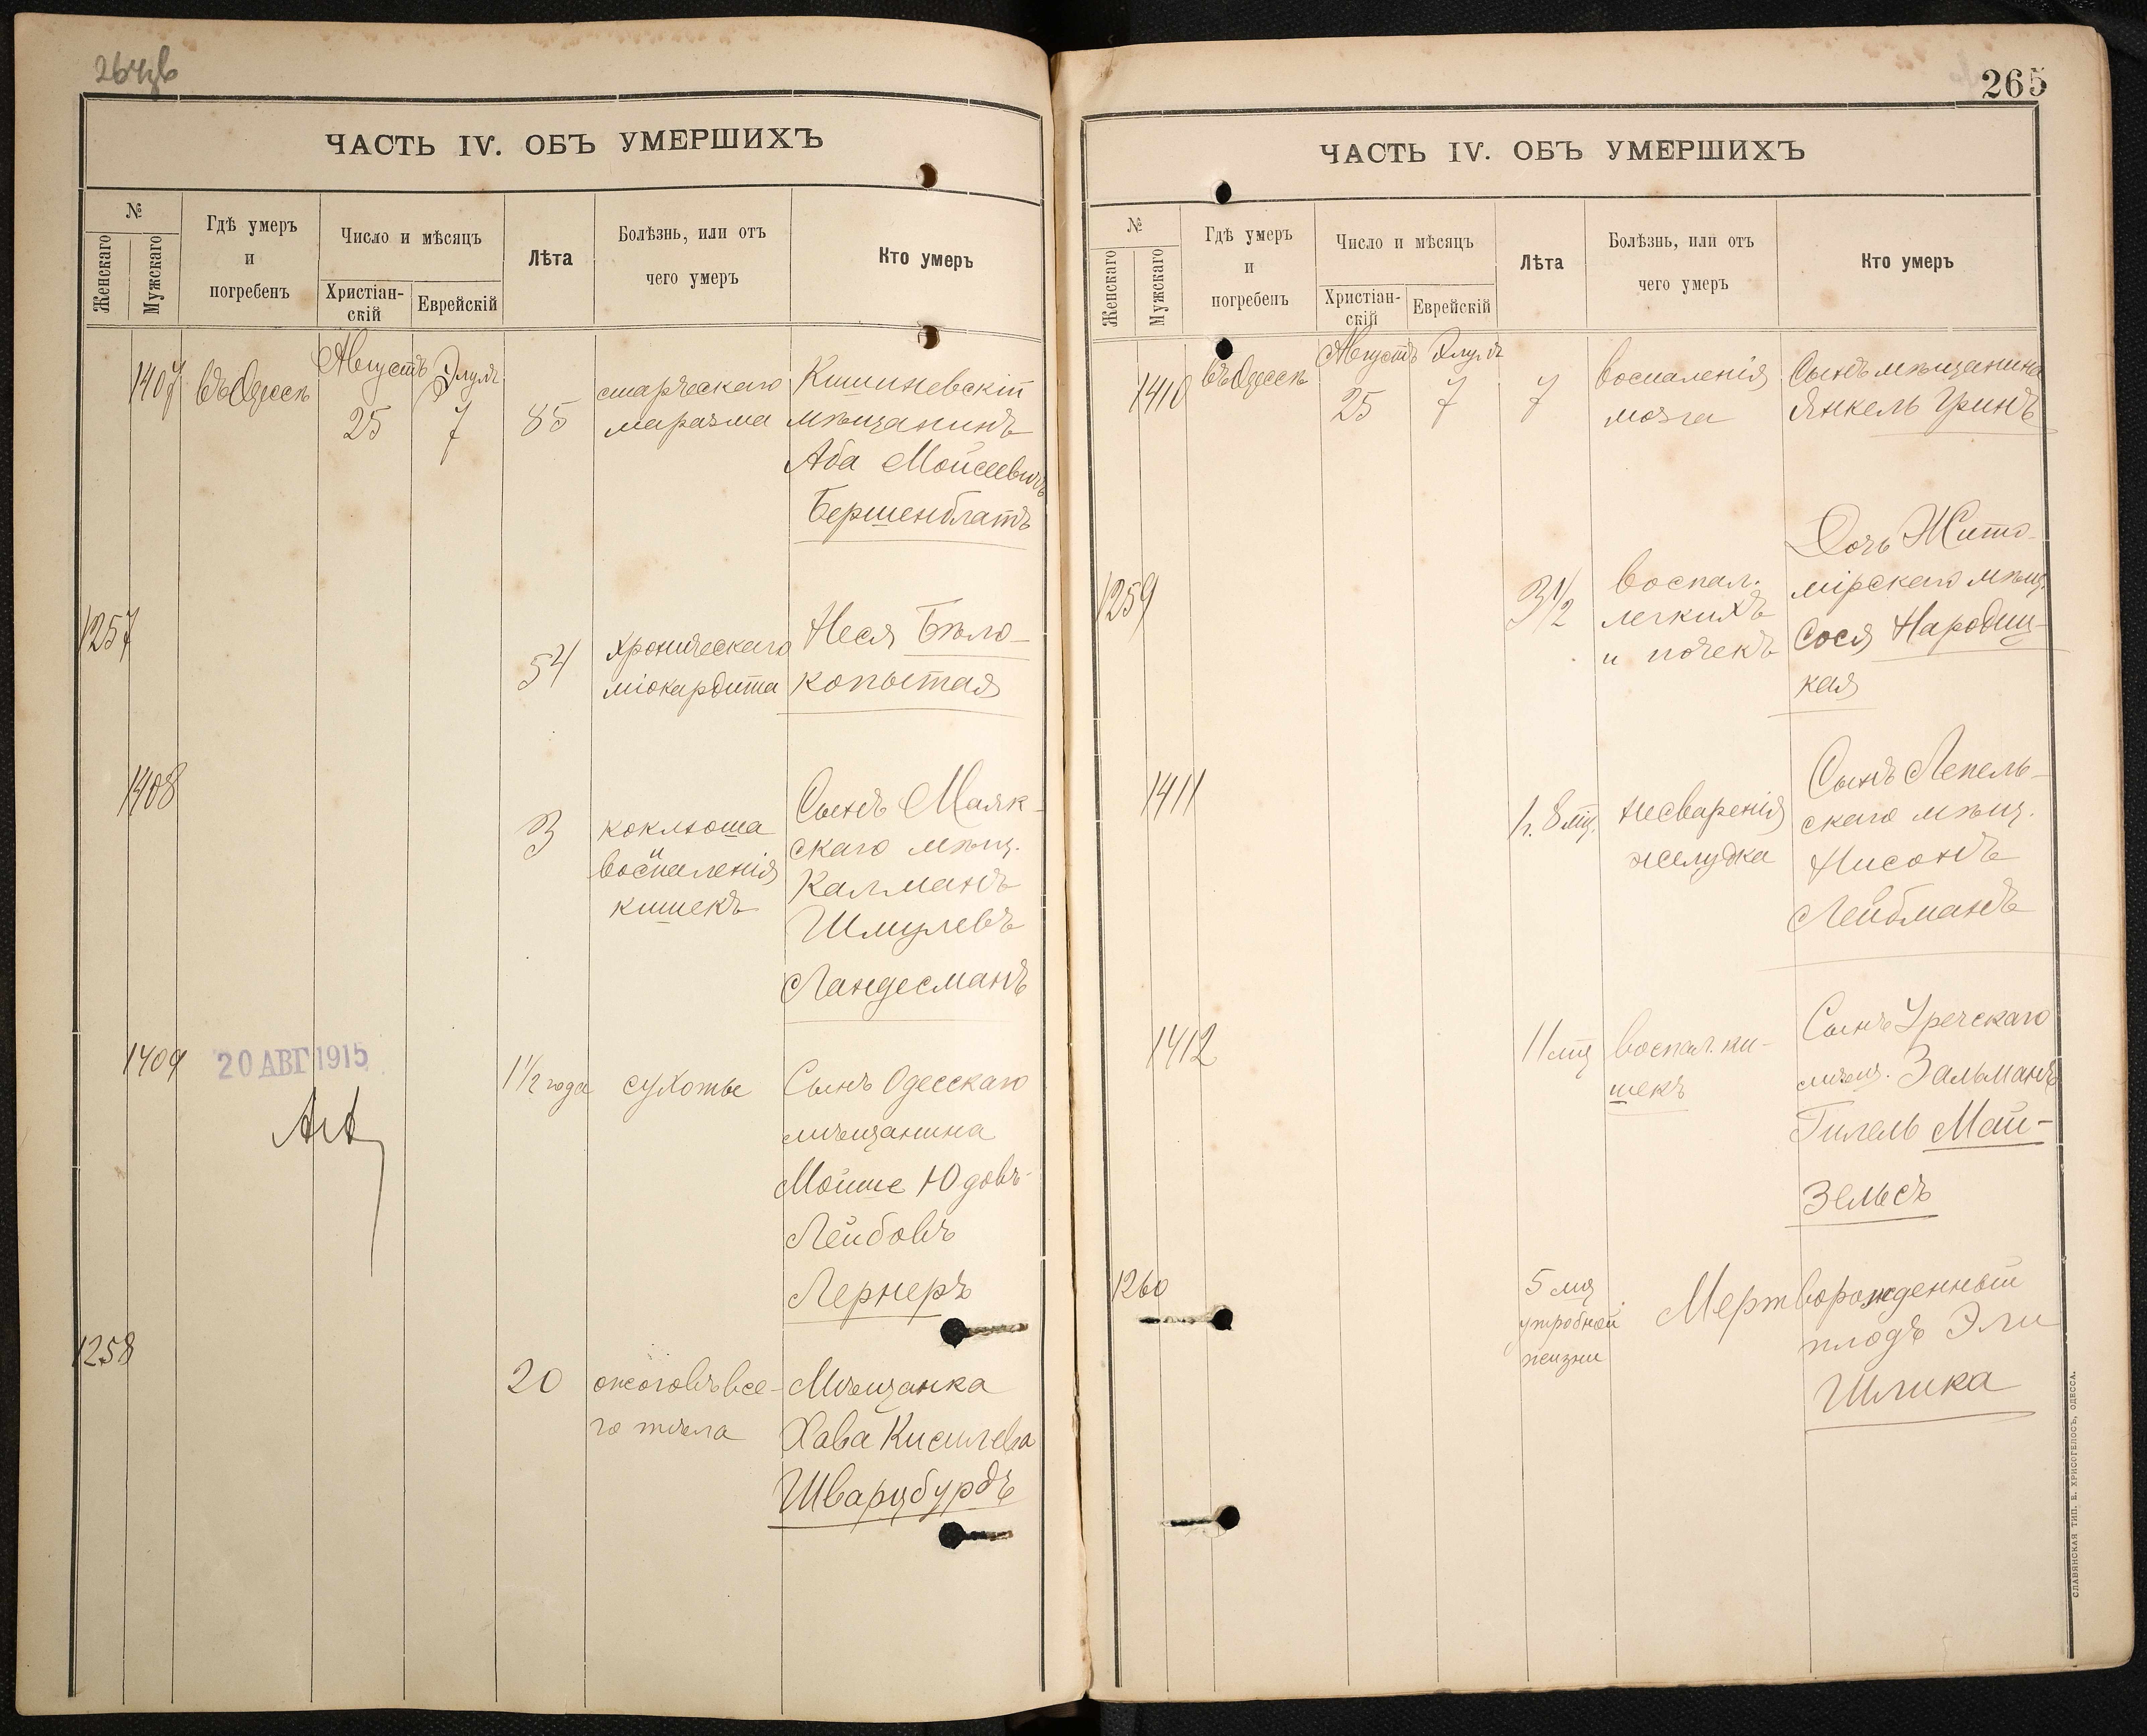 264 об
ЧАСТЬ IV. ОБЪ УМЕРШИХЪ
№
Женскаго
Мужскаго
Гдѣ умеръ
и
погребенъ
Число и мѣсяцъ
Христіан-
скій
Еврейскій
Лѣта
Болѣзнь, или отъ
чего умеръ
Кто умеръ
Августъ Элулъ
1407 въ Одессѣ 25 7 85
старческаго
маразма
Кишиневскій
мѣщанинъ
Аба Мойсеевичъ
Бершенблатъ
1257
54
хроническаго
міокардита
Неся Бѣло-
копытая
1408
3
коклюша
и
воспаленія
кишекъ
Сынъ Маяк-
скаго мѣщ.
Калманъ
Шмулевъ
Ландесманъ
1409
20 АВГ 1915
1½ года
сухотье
Сынъ Одесскаго
мѣщанина
Мойше Юдовъ-
Лейбовъ
Лернеръ
1258
20
ожоговъ все-
го тѣла
Мѣщанка
Хава Кисилева
Шварцбурдъ
265
ЧАСТЬ IV. ОБЪ УМЕРШИХЪ
№
Женскаго
Мужскаго
Гдѣ умеръ
и
погребенъ
Число и мѣсяцъ
Христіан-
скій
Еврейскій
Лѣта
Болѣзнь, или отъ
чего умеръ
Кто умеръ
Августъ Элулъ
1410 въ Одессѣ 25 7 7
воспаленія
мозга
Сынъ мѣщанина
Янкель Гринъ
1259
3½
воспал.
легкихъ
и почекъ
Дочь Жито-
мірскаго мѣщ.
Сося Народиц-
кая
1411
1 г. 8 мц.
несваренія
желудка
Сынъ Лепель-
скаго мѣщ.
Нисонъ
Лейбманъ
1412
11 мц
воспал. ки-
шекъ
Сынъ Уречскаго
мѣщ. Зальманъ
Гилель Май-
зельсъ
1260
5 мц
утробной
жизни
Мертворожденный
плодъ Эли
Шлика
СЛАВЯНСКАЯ ТИП. Е. ХРИСОГЕЛОСЪ, ОДЕССА.